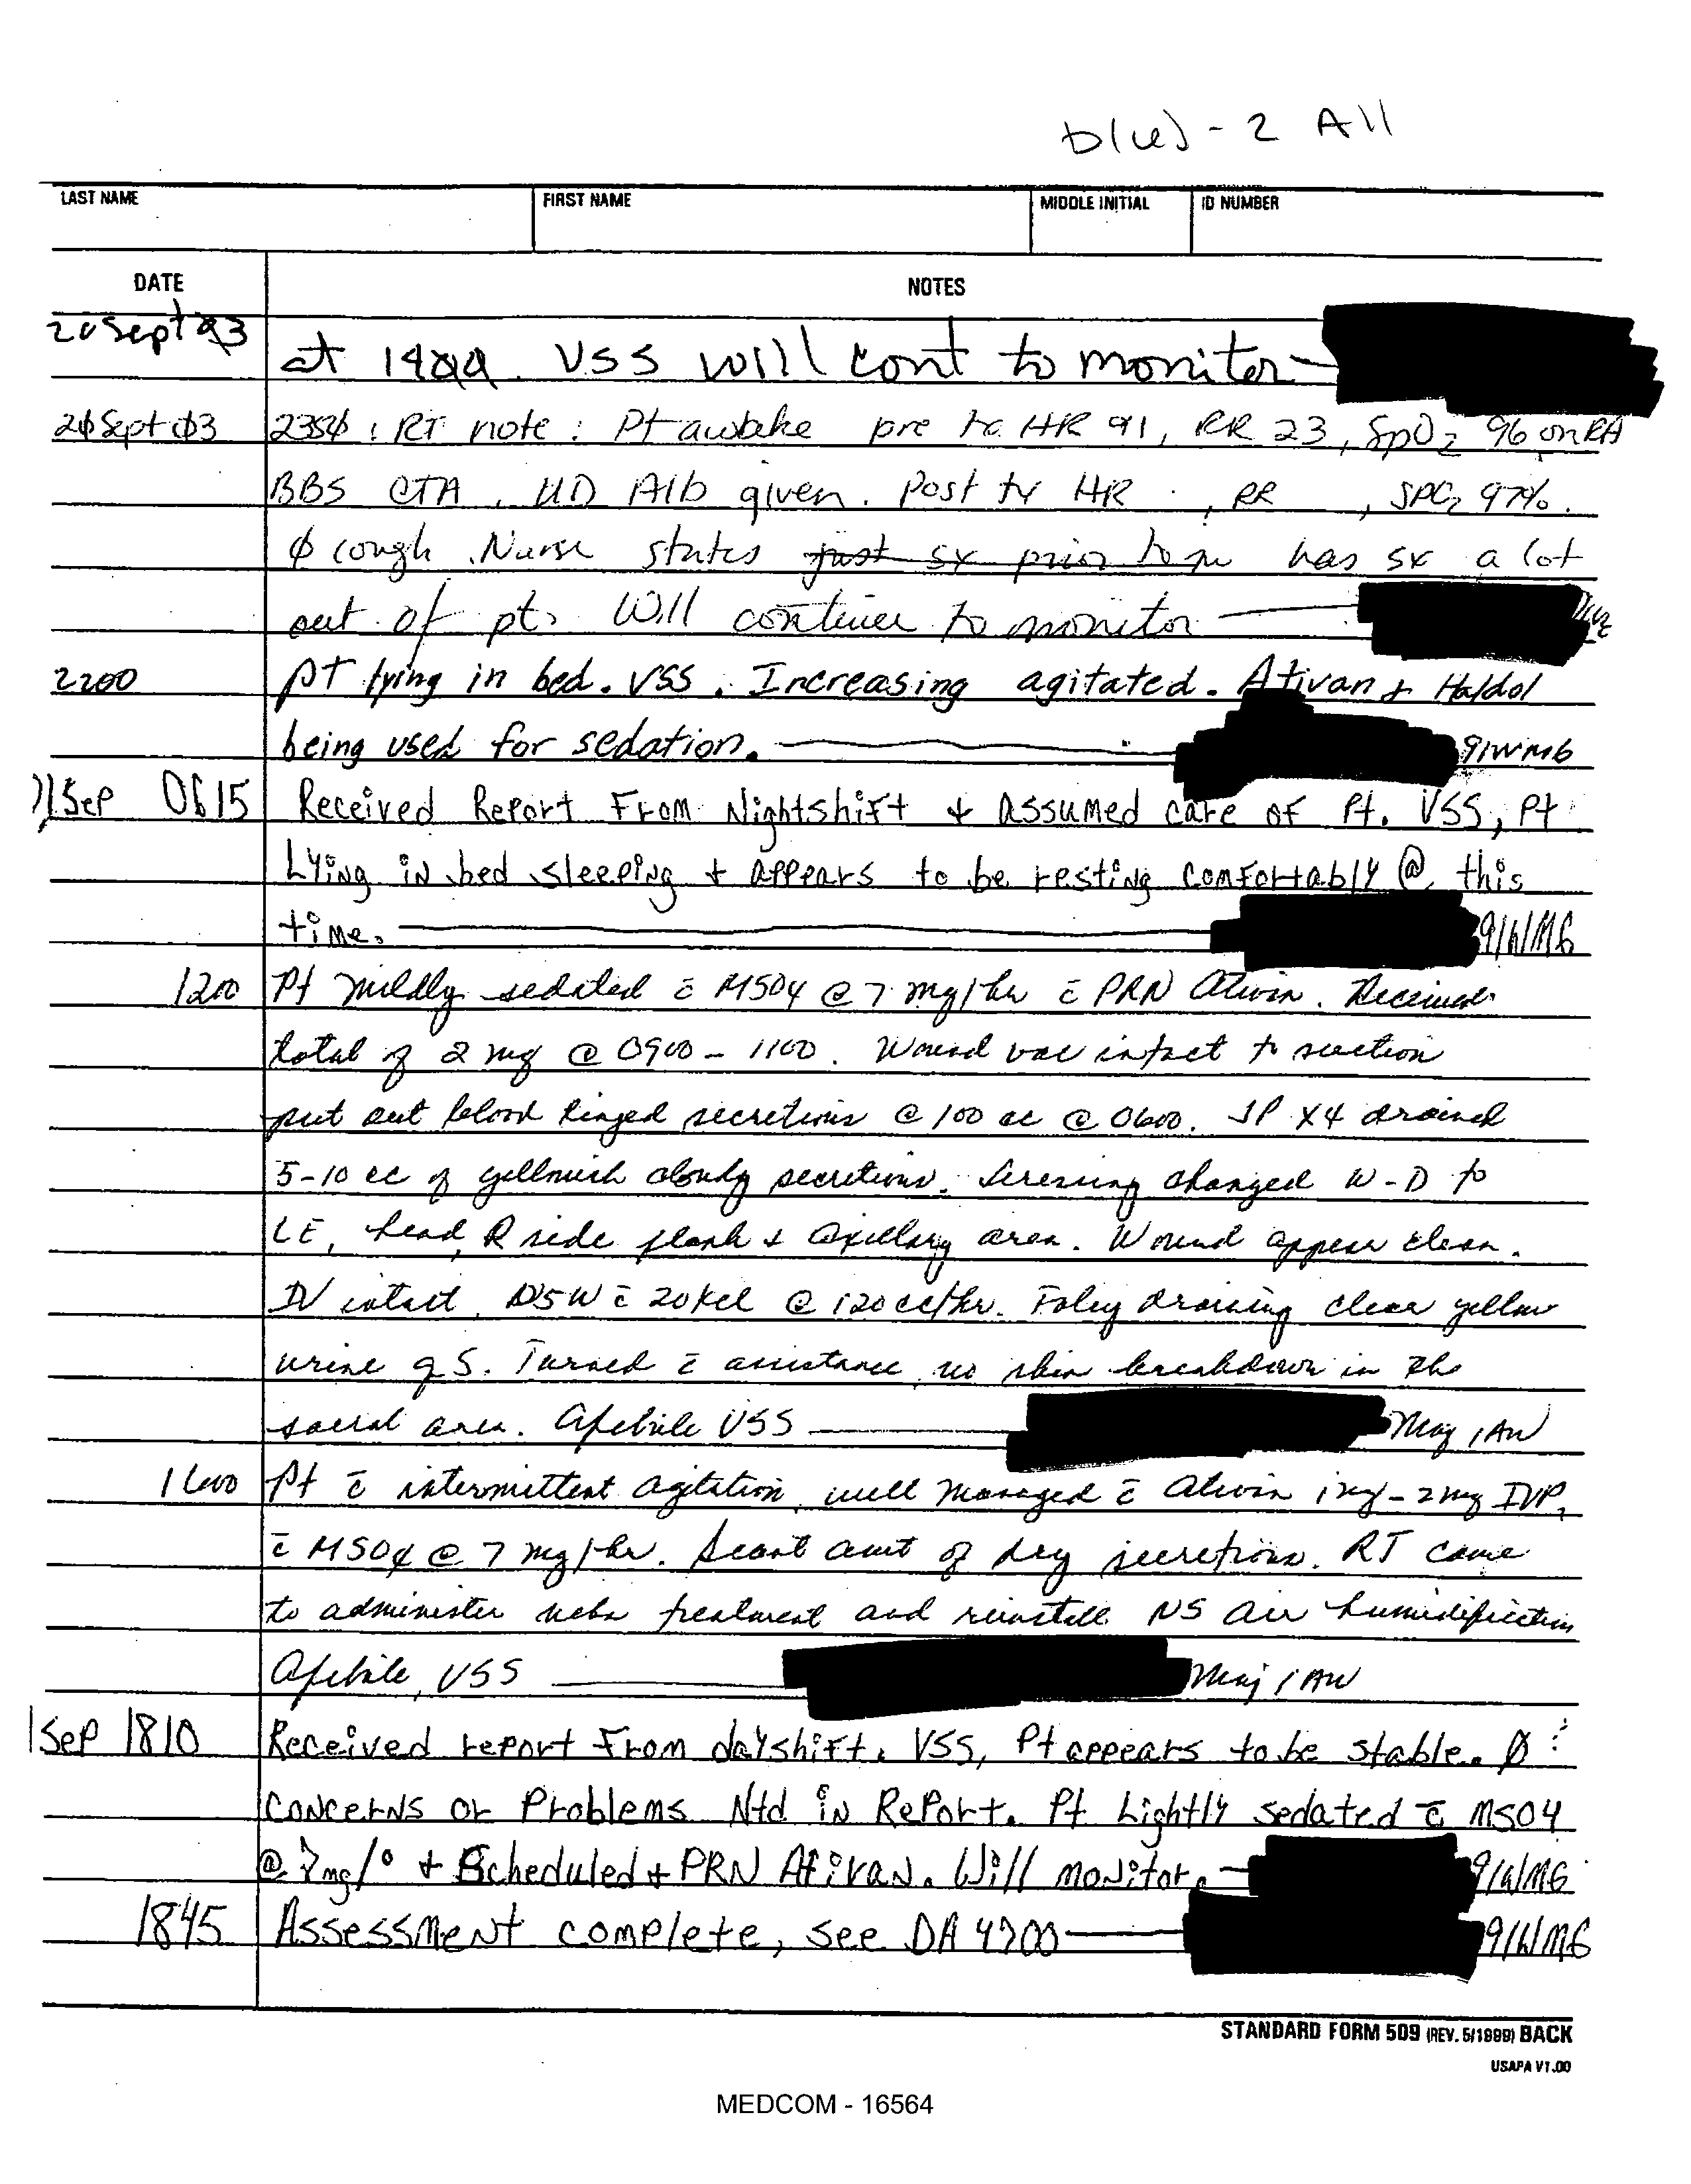 b(6)-2 All
LAST NAME FIRST NAME MIDDLE INITIAL ID NUMBER
DATE NOTES
20 Sept 03 at 1400. VSS will cont to monitor
20 Sept 03 2350: RT note: Pt awake pre tx HR 91, RR 23, SpO2 96 on RA
BBS CTA, UD Alb given. Post tx HR , RR , SPO2 97%.
Ø cough. Nurse states just sx prior to me has sx a lot
out of pt. Will continue to monitor
2200 pt lying in bed. VSS. Increasing agitated. Ativan + Haldol
being used for sedation. 91WM6
21 Sep 0615 Received Report From Nightshift + assumed care of Pt. VSS, Pt
Lying in bed sleeping + appears to be resting comfortably @ this
time. 91WM6
1200 Pt mildly sedated c̄ MSO4 @ 7 mg/hr c̄ PRN Ativan. Received
total of 2 mg @ 0900 - 1100. Wound vac intact to suction
put out blood tinged secretions @ 100 cc @ 0600. JP X4 drained
5-10 cc of yellowish cloudy secretions. Dressing changed W-D to
LE, head, R side flank & axillary area. Wound appear clean.
IV intact, D5W c̄ 20 Kcl @ 120 cc/hr. Foley draining clear yellow
urine qS. Turned c̄ assistance, no skin breakdown in the
sacral area. Afebrile VSS Maj, AN
1600 Pt c̄ intermittent agitation, well managed c̄ Ativan 1mg-2mg IVP,
c̄ MSO4 @ 7 mg/hr. Scant amt of dry secretions. RT came
to administer nebs treatment and reinstall NS air humidification
Afebrile, VSS Maj, AN
1 Sep 1810 Received report From dayshift. VSS, Pt appears to be stable. Ø
Concerns or Problems Ntd in Report. Pt Lightly sedated c̄ MSO4
@ 7mg/° + Scheduled + PRN Ativan. Will monitor. 91WM6
1845 Assessment complete, see DA 4700 91WM6
STANDARD FORM 509 (REV. 5/1999) BACK
USAPA V1.00
MEDCOM - 16564